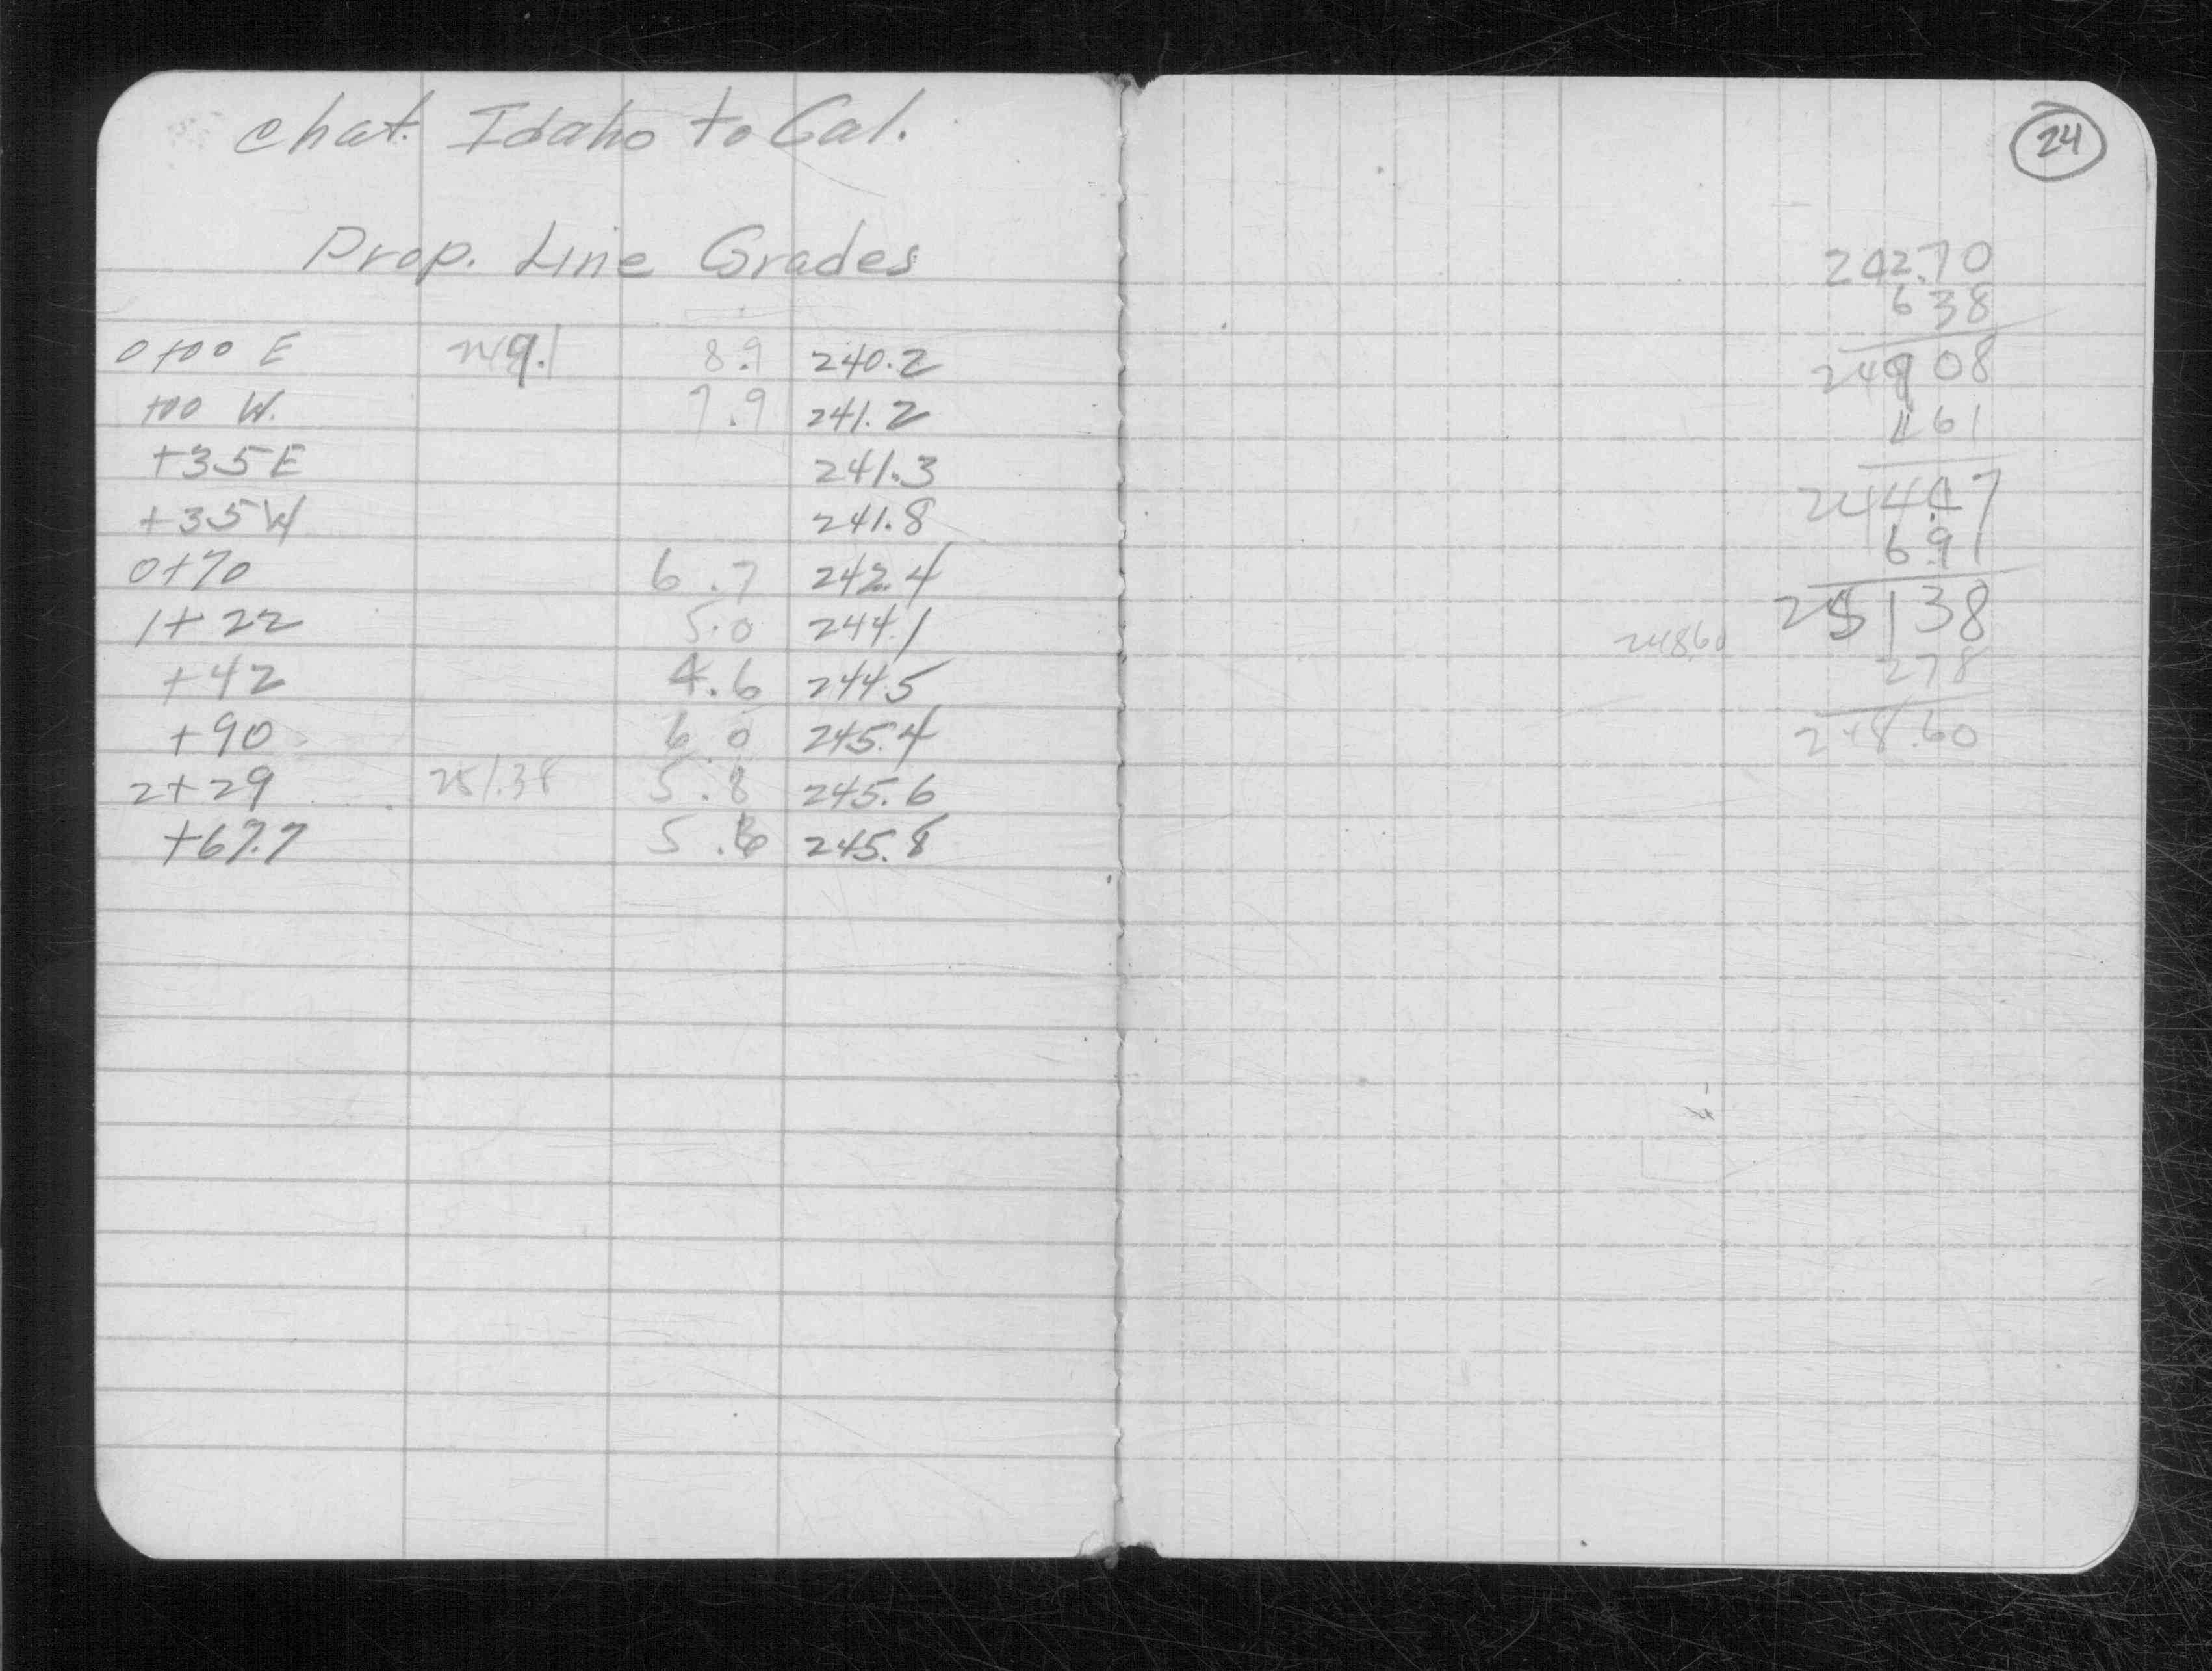 Chat. Idaho to Cal.
Prop. Line Grades
0+00 E 249.1 8.9 240.2
+00 W. 7.9 241.2
+35 E 241.3
+35 W 241.8
0+70 6.7 242.4
1+22 5.0 244.1
+42 4.6 244.5
+90 6.0 245.4
2+29 251.38 5.8 245.6
+67.7 5.6 245.8
24
242.70
6 38
249 08
4 61
244.47
6.91
251 38
248.60
2 78
248.60